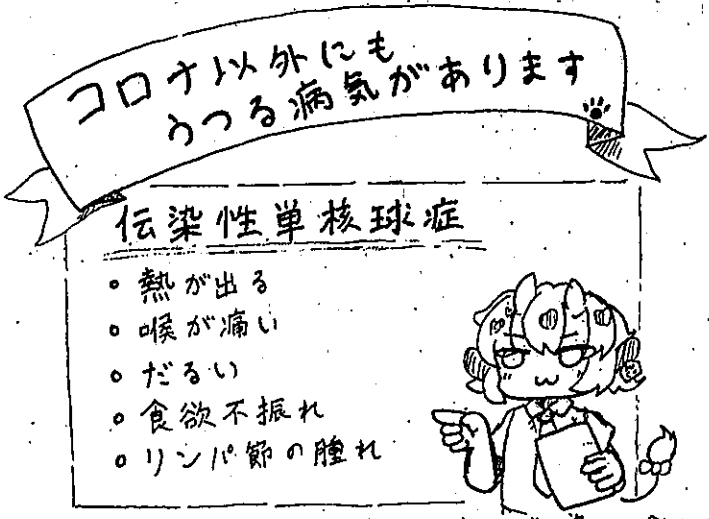 コロナ以外にも
うつる病気があります
伝染性単核球症
• 熱が出る
• 喉が痛い
• だるい
• 食欲不振れ
• リンパ節の腫れ